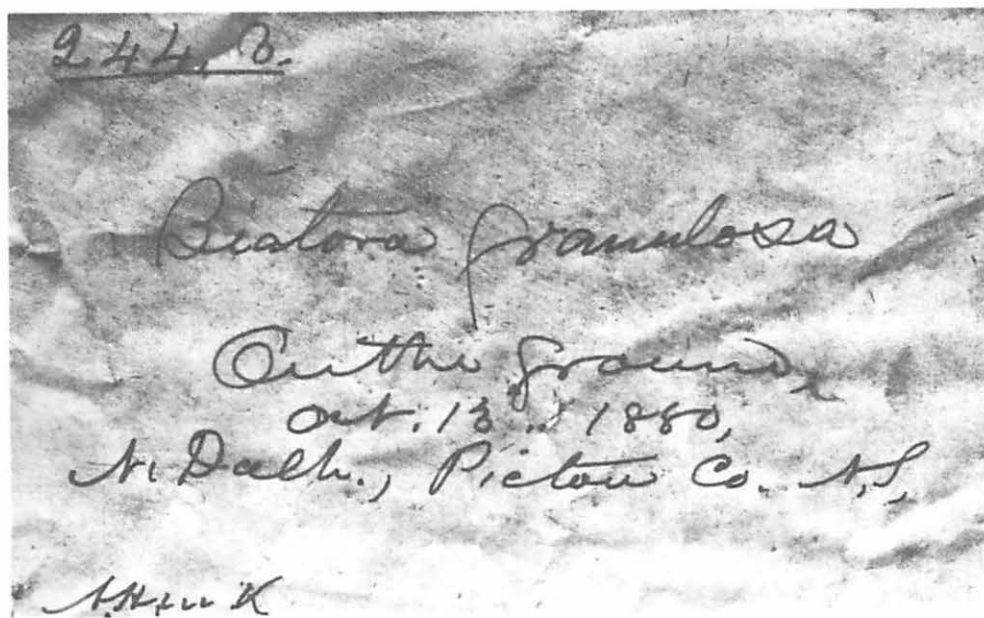 244, B.
Biatora granulosa
On the ground,
Oct. 13.. 1880,
N. Dalh., Pictou Co. N.S,